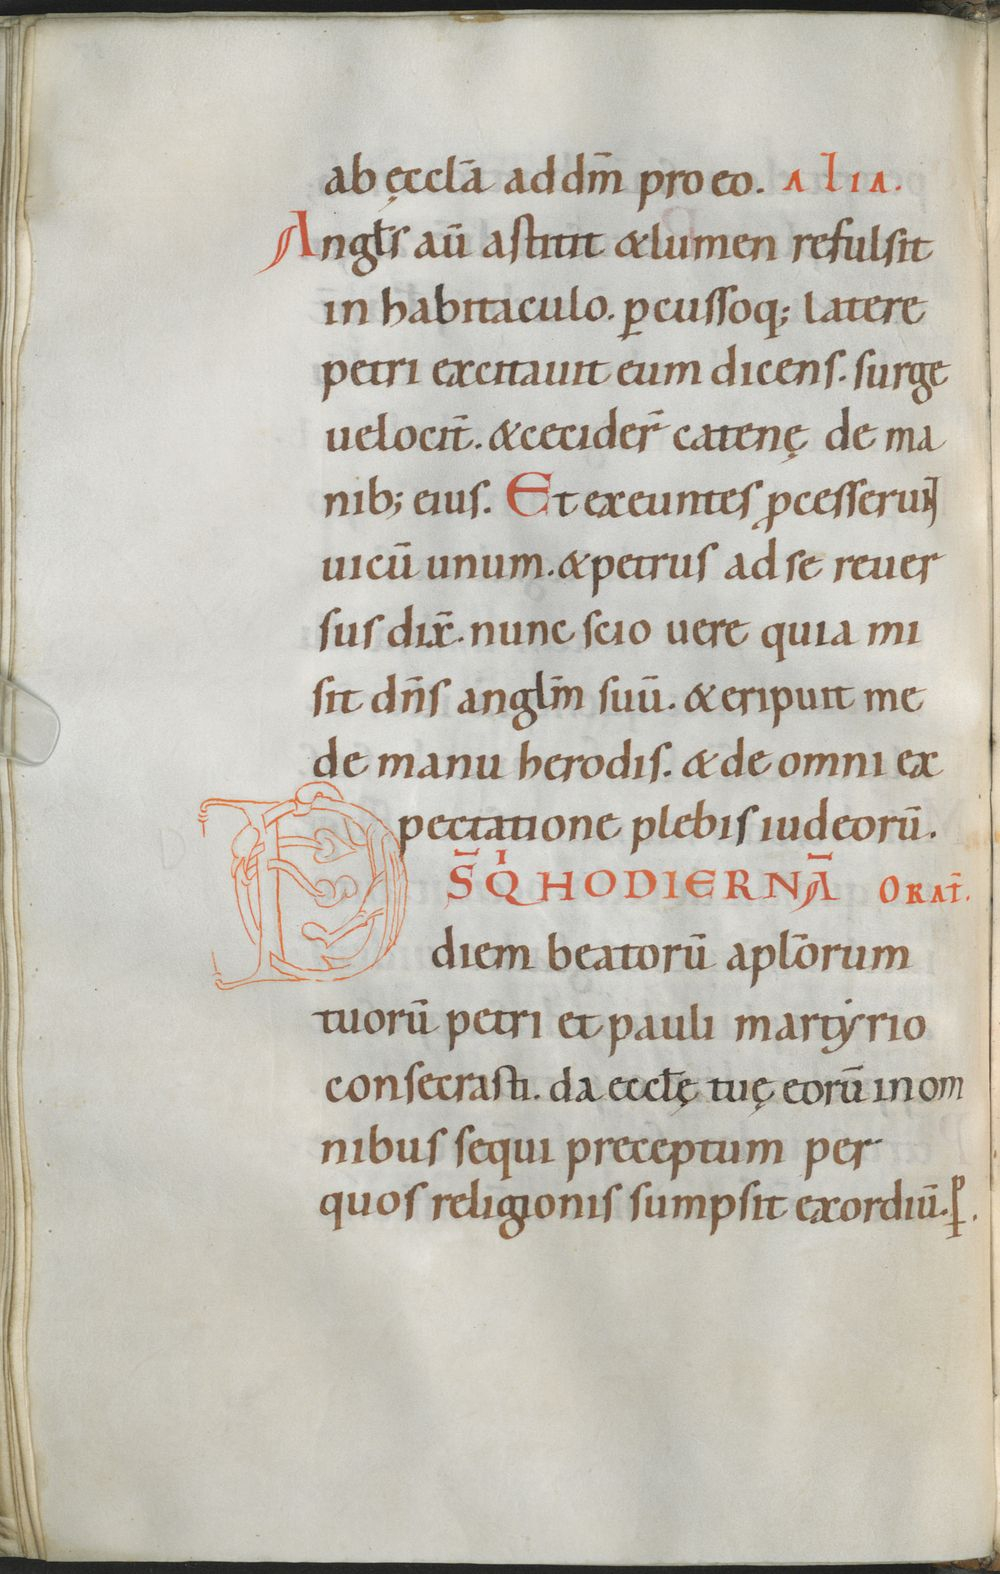 ab ęccłā ad dm̄ pro eo. alia.
Angłs aū astitit & lumen refulsit
in habitaculo. ꝑcussoq; latere
petri excitauit eum dicens. surge
uelocit̄. & cecider̄ catenę de ma
nib; eius. Et exeuntes ꝓcesserunt
uicū unum. & petrus ad se reuer
sus dix̄. nunc scio uere quia mi
sit dn̄s anglm̄ suū. & eripuit me
de manu herodis. & de omni ex
pectatione plebis iudeorū.
D̄S Qͥ HODIERNĀ ORAT̄.
diem beatorū aplōrum
tuorū petri et pauli martẏrio
consecrasti. da eccłę tuę eorū in om
nibus sequi preceptum per
quos religionis sumpsit exordiū. ꝑ.